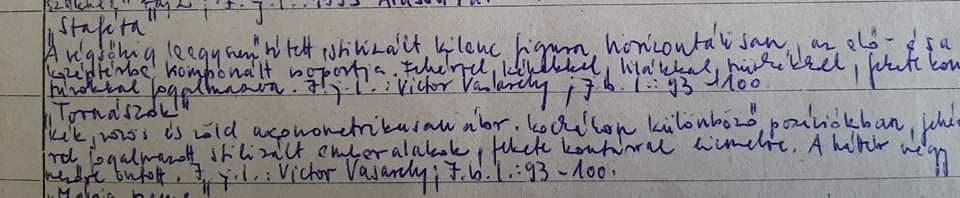 "Staféta"
A végsőkig leegyszerűsített, stilizált kilenc figura horizontálisan, az elő- és a
középtérbe komponált csoportja. Fehérrel, kékekkel, lilákkal, szürkékkel, fekete kon
túrokkal fogalmazva. J. j. l.: Victor Vasarely; J. b. l.: 93-100.
"Tornászok"
Kék, vörös és zöld axonometrikusan ábr. kockákon különböző pozíciókban, fehé
rrel fogalmazott stilizált emberalakok, fekete kontúrral kiemelve. A háttér négy
bontott. J. j. l.: Victor Vasarely; J. b. l.: 93-100.